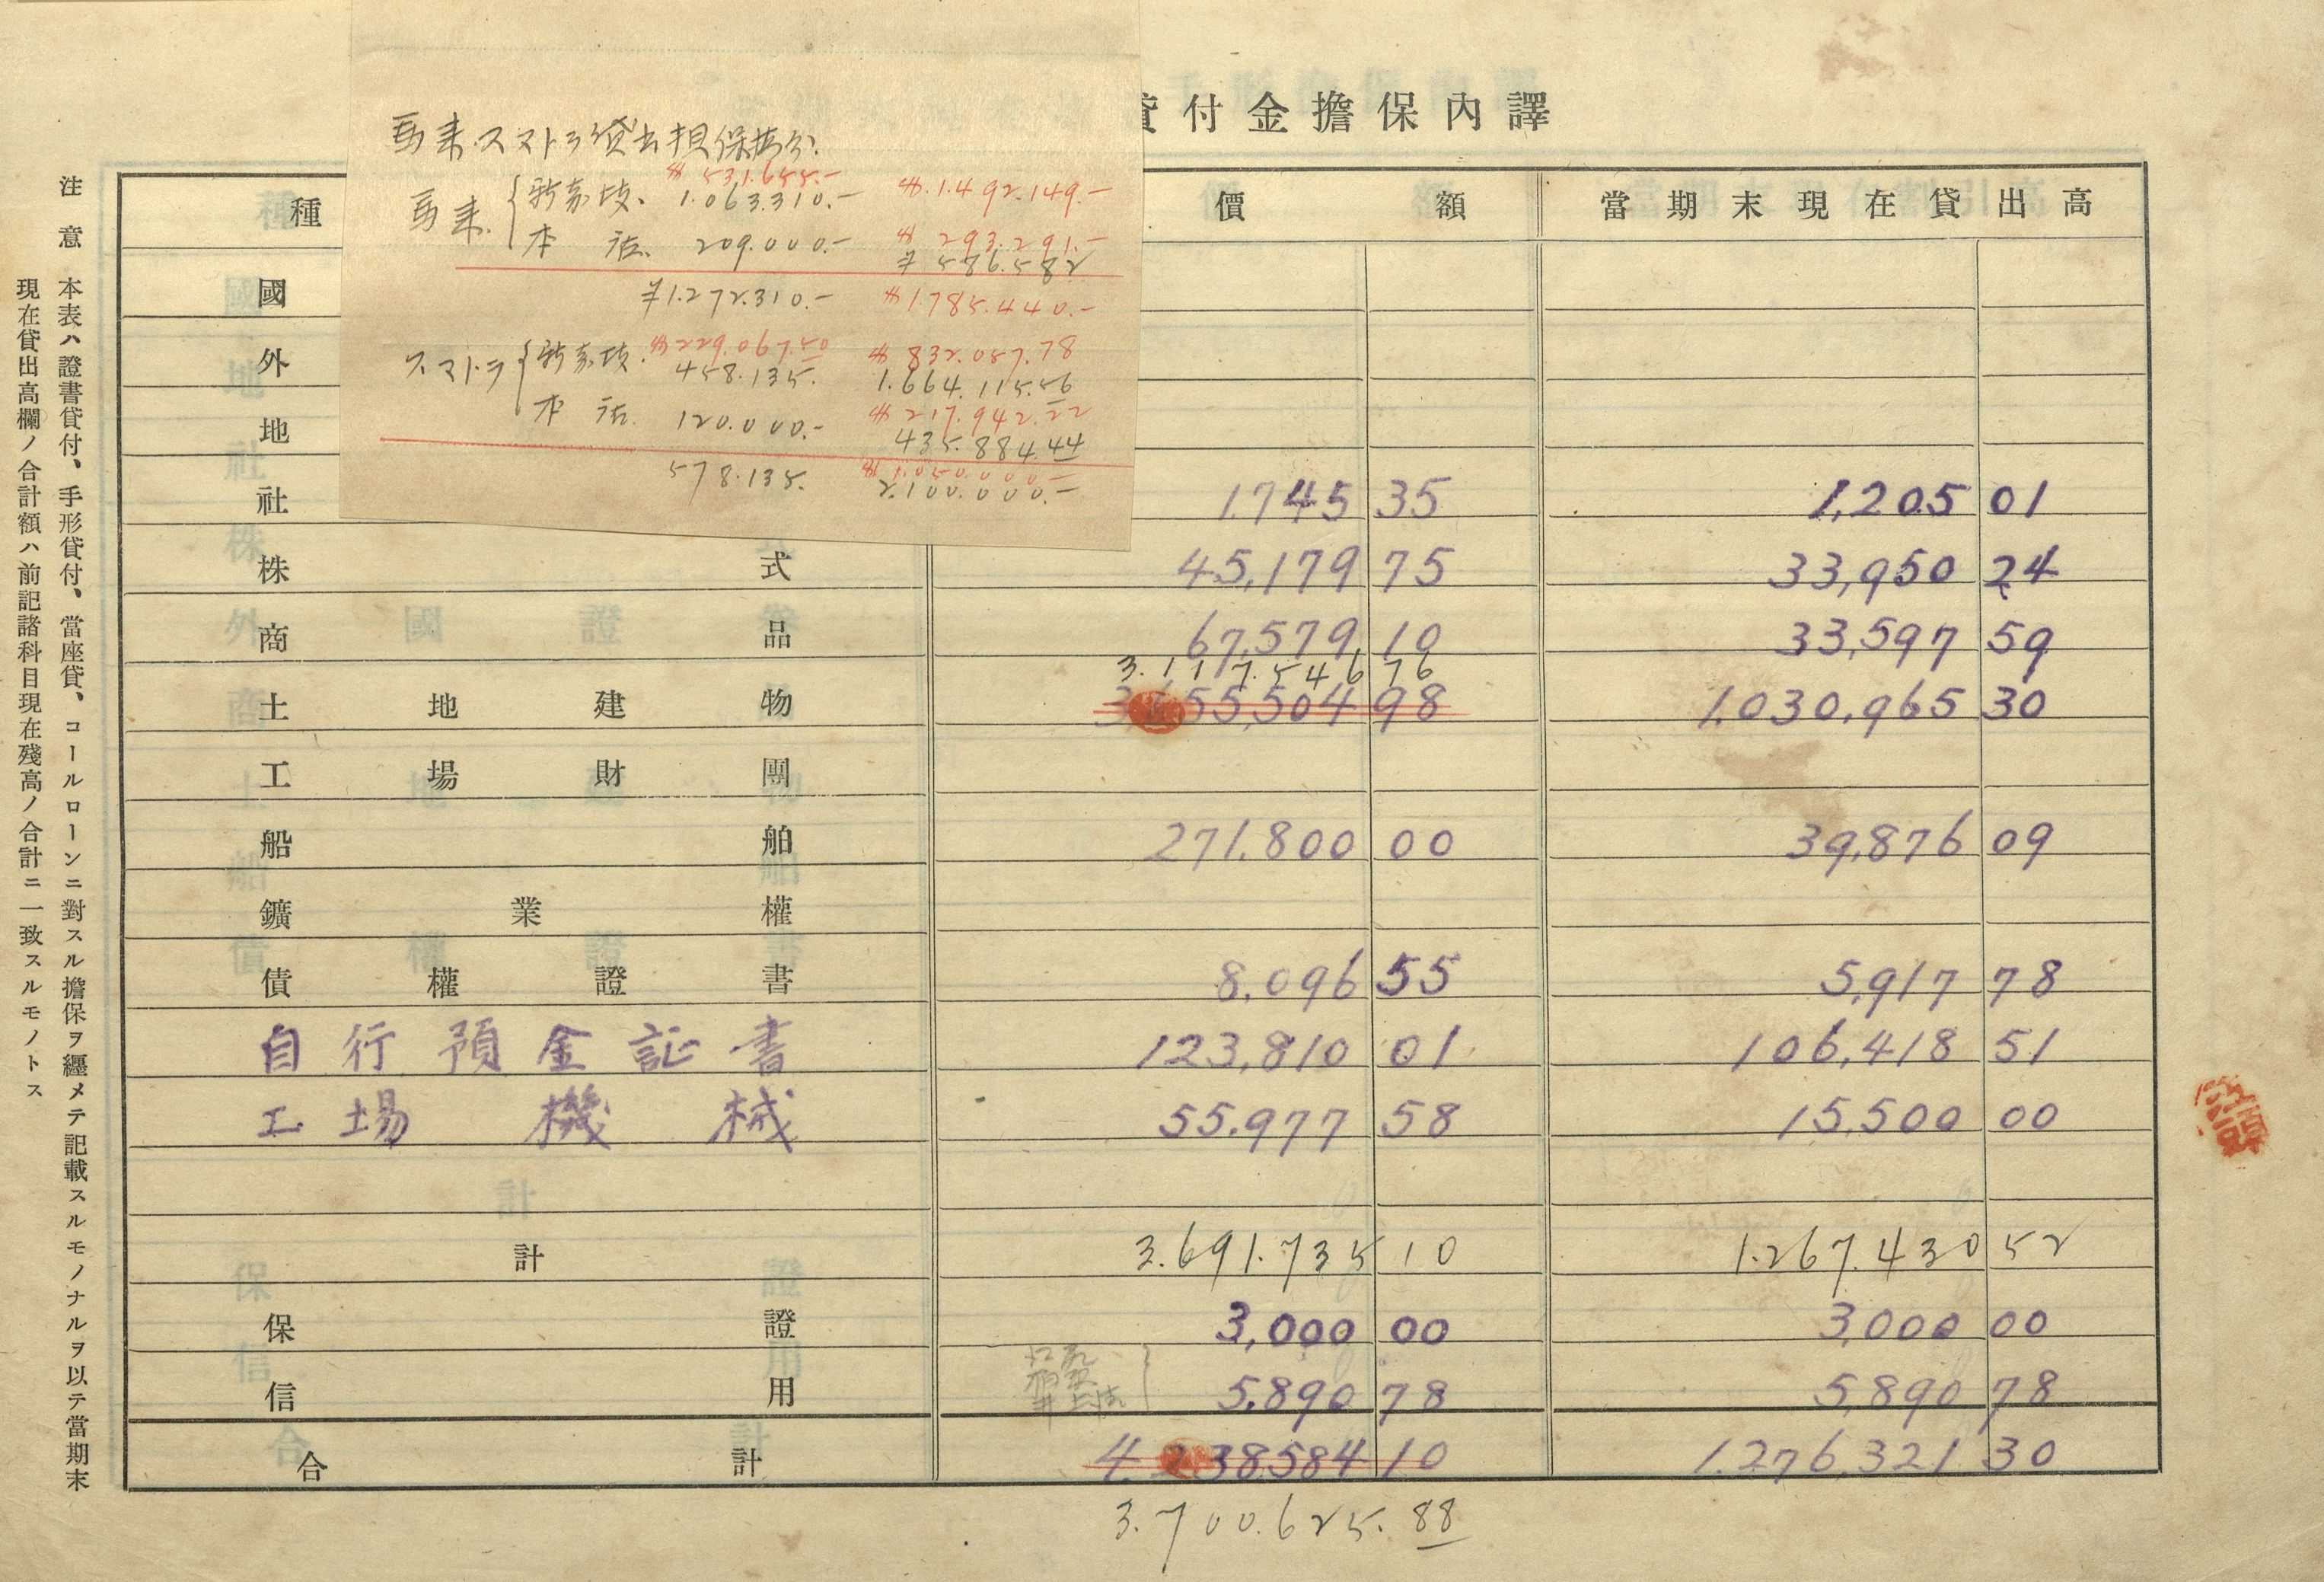 貸付金擔保內譯
馬来.スマトラ貸出担保挿分.
$ 531.655.-
馬来. 新嘉坡、 1.063.310.- $.1.492.149.-
本 店、 209.000.- $ 293.291.-
¥ 586.582
¥1.272.310.- $1.785.440.-
$229.067.50 $ 832.057.78
スマトラ 新嘉坡. 458.135. 1.664.115.56
$ 217.942.22
本 店. 120.000.- 435.884.44
$1.050.000.-
578.135. 2.100.000.-
種 價 額 當期末現在貸出高
國
外
地
社 1.745 35 1,205 01
株 式 45,179 75 33,950 24
商 品 67,579 10 33,597 59
3.117.546 76
土地建物 55,504 98 1.030,965 30
工場財團
船 舶 271.800 00 39,876 09
鑛業權
債權證書 8,096 55 5,917 78
自行預金証書 123,810 01 106,418 51
工場機械 55.977 58 15,500 00
計 3.691.735 10 1.267.430 52
保 證 3,000 00 3,000 00
信 用 5,890 78 5,890 78
合 計 4. 38.584 10 1.276,321 30
3.700.625.88
注意 本表ハ證書貸付、手形貸付、當座貸、コールローンニ對スル擔保ヲ纒メテ記載スルモノナルヲ以テ當期末
現在貸出高欄ノ合計額ハ前記諸科目現在殘高ノ合計ニ一致スルモノトス